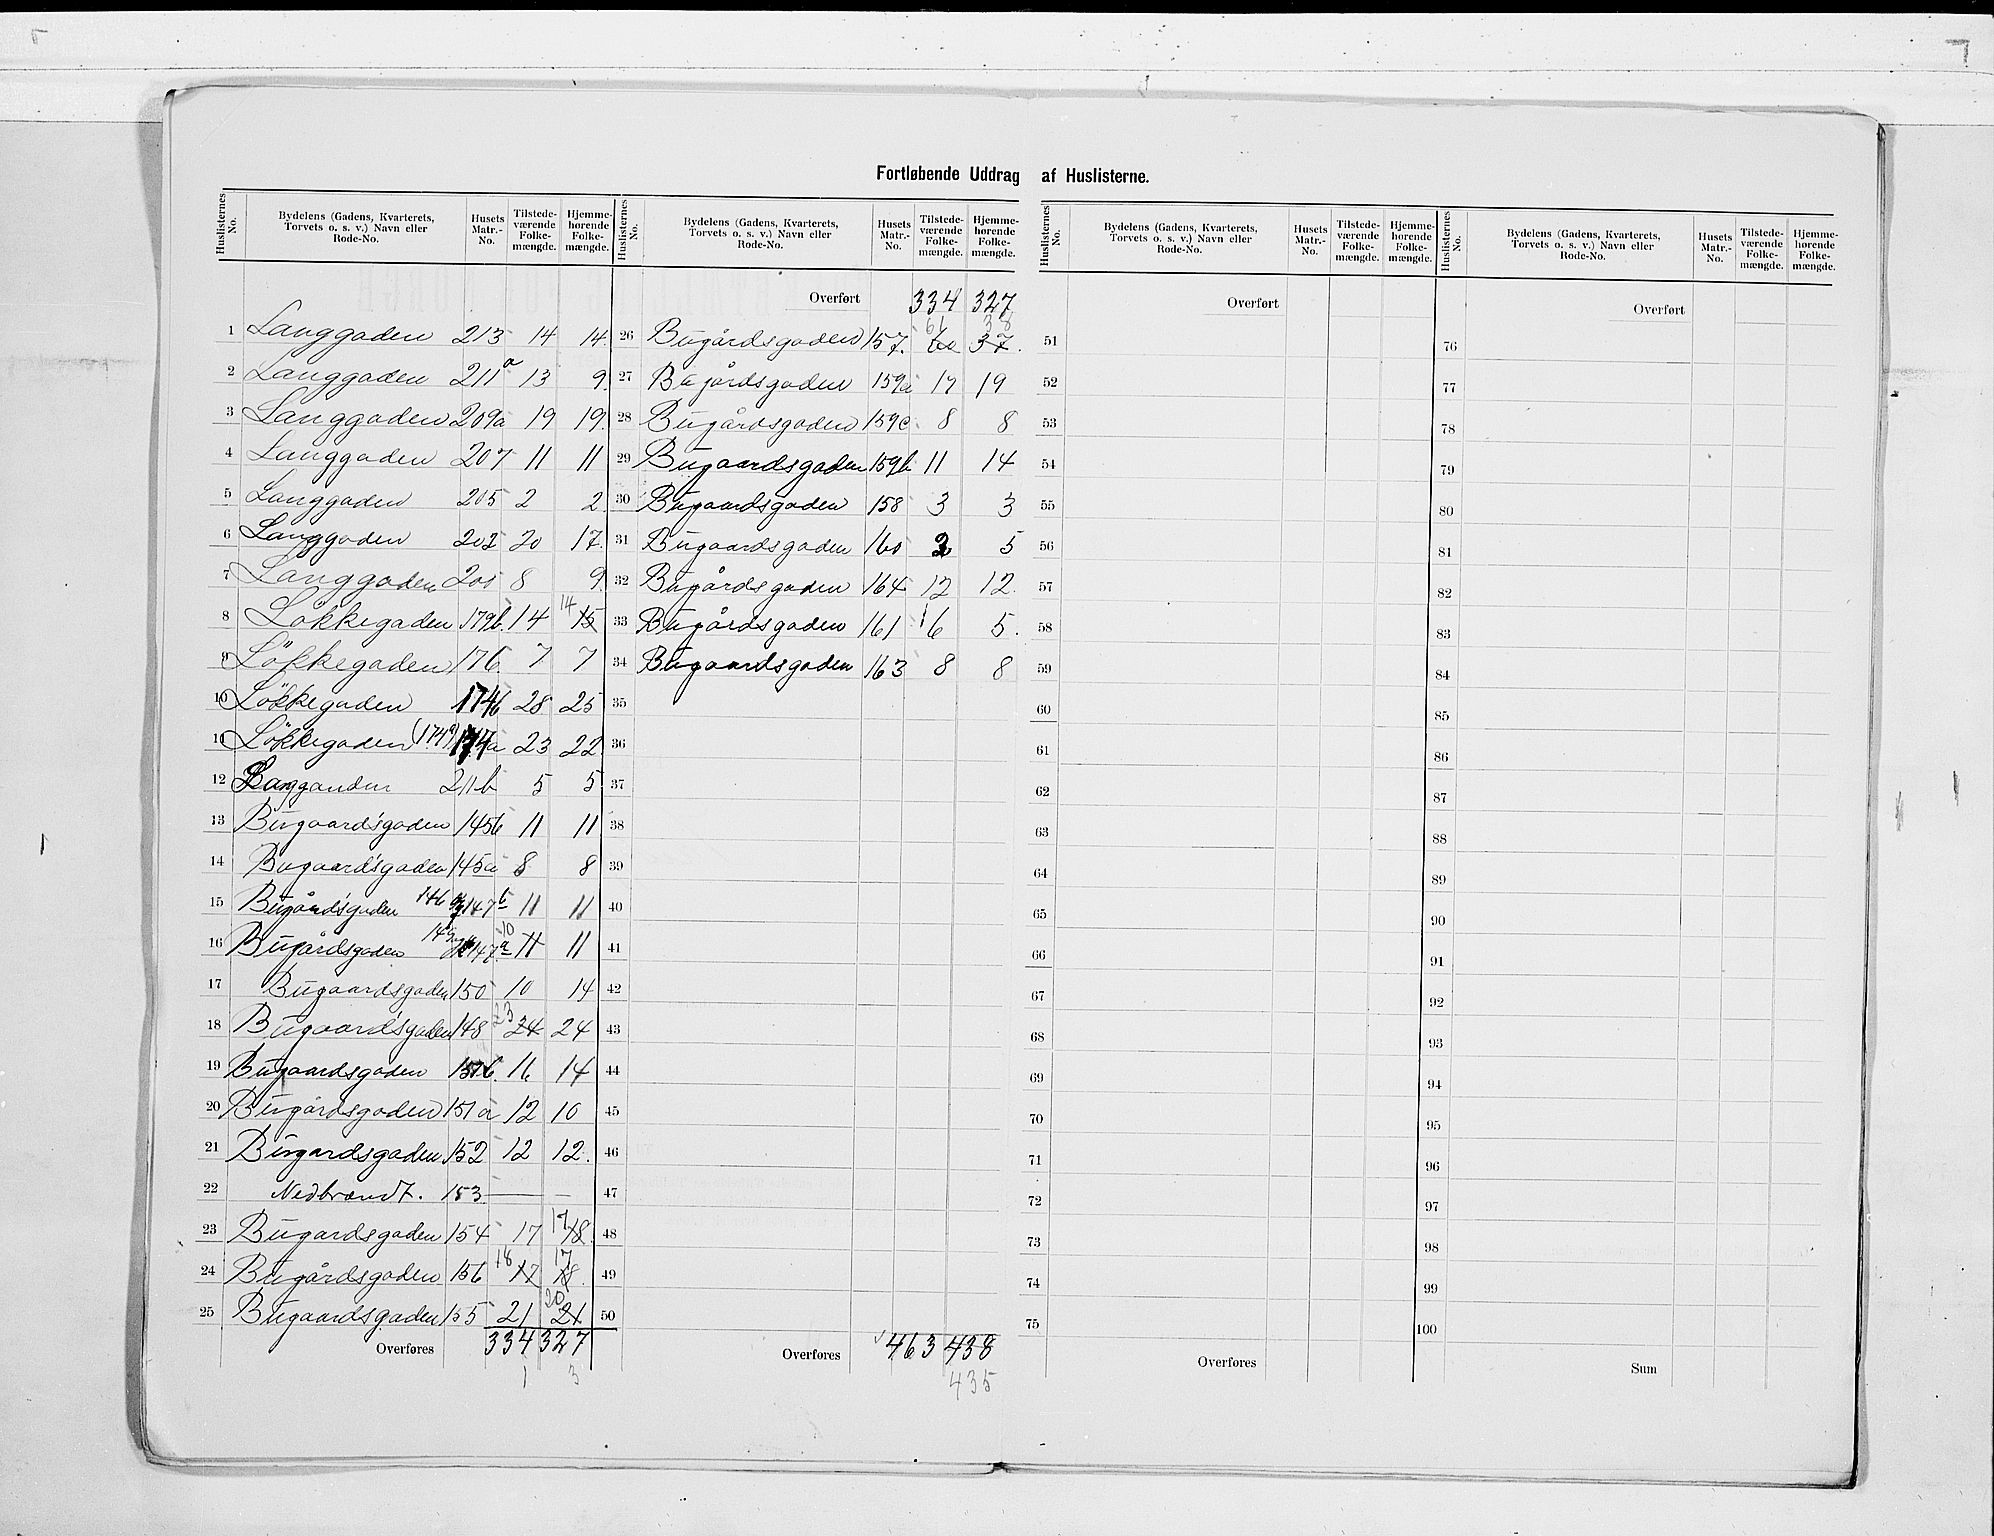 Fortløbende Uddrag af Huslisterne.
Huslisternes No. Bydelens (Gadens, Kvarterets, Torvets o. s. v.) Navn eller Rode-No. Husets Matr.-No. Tilstedeværende Folkemængde. Hjemmehørende Folkemængde.
1 Langgaden 213 14 14.
2 Langgaden 211a 13 9.
3 Langgaden 209a 19 19.
4 Langgaden 207 11 11
5 Langgaden 205 2 2
6 Langgaden 203 20 17.
7 Langgaden 201 8 9.
8 Løkkegaden 179b. 14 14 15
9 Løkkegaden 176 7 7
10 Løkkegaden 174b 28 25
11 Løkkegaden (174a) 174a 23 22
12 Langganden 211b 5 5
13 Bugaardsgaden 145b 11 11
14 Bugaardsgaden 145a 8 8
15 Bugårdsgaden 146 147b 11 11
16 Bugårdsgaden 147a 10 11 11
17 Bugaardsgaden 150 10 14
18 Bugaardsgaden 148 23 24 24
19 Bugaardsgaden 151b. 16 14
20 Bugårdsgaden 151a 12 10
21 Bugardsgaden 152 12 12.
22 Nedbrændt. 153 — —
23 Bugardsgaden 154 17 17 18.
24 Bugårdsgaden 156 18 17 17 18.
25 Bugaardsgaden 155 21 20 21
Overføres 334 327
1 3
Huslisternes No. Bydelens (Gadens, Kvarterets, Torvets o. s. v.) Navn eller Rode-No. Husets Matr.-No. Tilstedeværende Folkemængde. Hjemmehørende Folkemængde.
Overført 334 327
26 Bugårdsgaden 157. 61 60 38 37.
27 Bugårdsgaden 159a 19 19
28 Bugårdsgaden 159c 8 8
29 Bugaardsgaden 159b 11 14
30 Bugaardsgaden 158 3 3
31 Bugaardsgaden 160 2 5
32 Bugårdsgaden 164 12 12.
33 Bugårdsgaden 161 6 5.
34 Bugaardsgaden 163 8 8
35
36
37
38
39
40
41
42
43
44
45
46
47
48
49
50
Overføres 463 438
435
Huslisternes No. Bydelens (Gadens, Kvarterets, Torvets o. s. v.) Navn eller Rode-No. Husets Matr.-No. Tilstedeværende Folkemængde. Hjemmehørende Folkemængde.
Overført
51
52
53
54
55
56
57
58
59
60
61
62
63
64
65
66
67
68
69
70
71
72
73
74
75
Overføres
Huslisternes No. Bydelens (Gadens, Kvarterets, Torvets o. s. v.) Navn eller Rode-No. Husets Matr.-No. Tilstedeværende Folkemængde. Hjemmehørende Folkemængde.
Overført
76
77
78
79
80
81
82
83
84
85
86
87
88
89
90
91
92
93
94
95
96
97
98
99
100
Sum